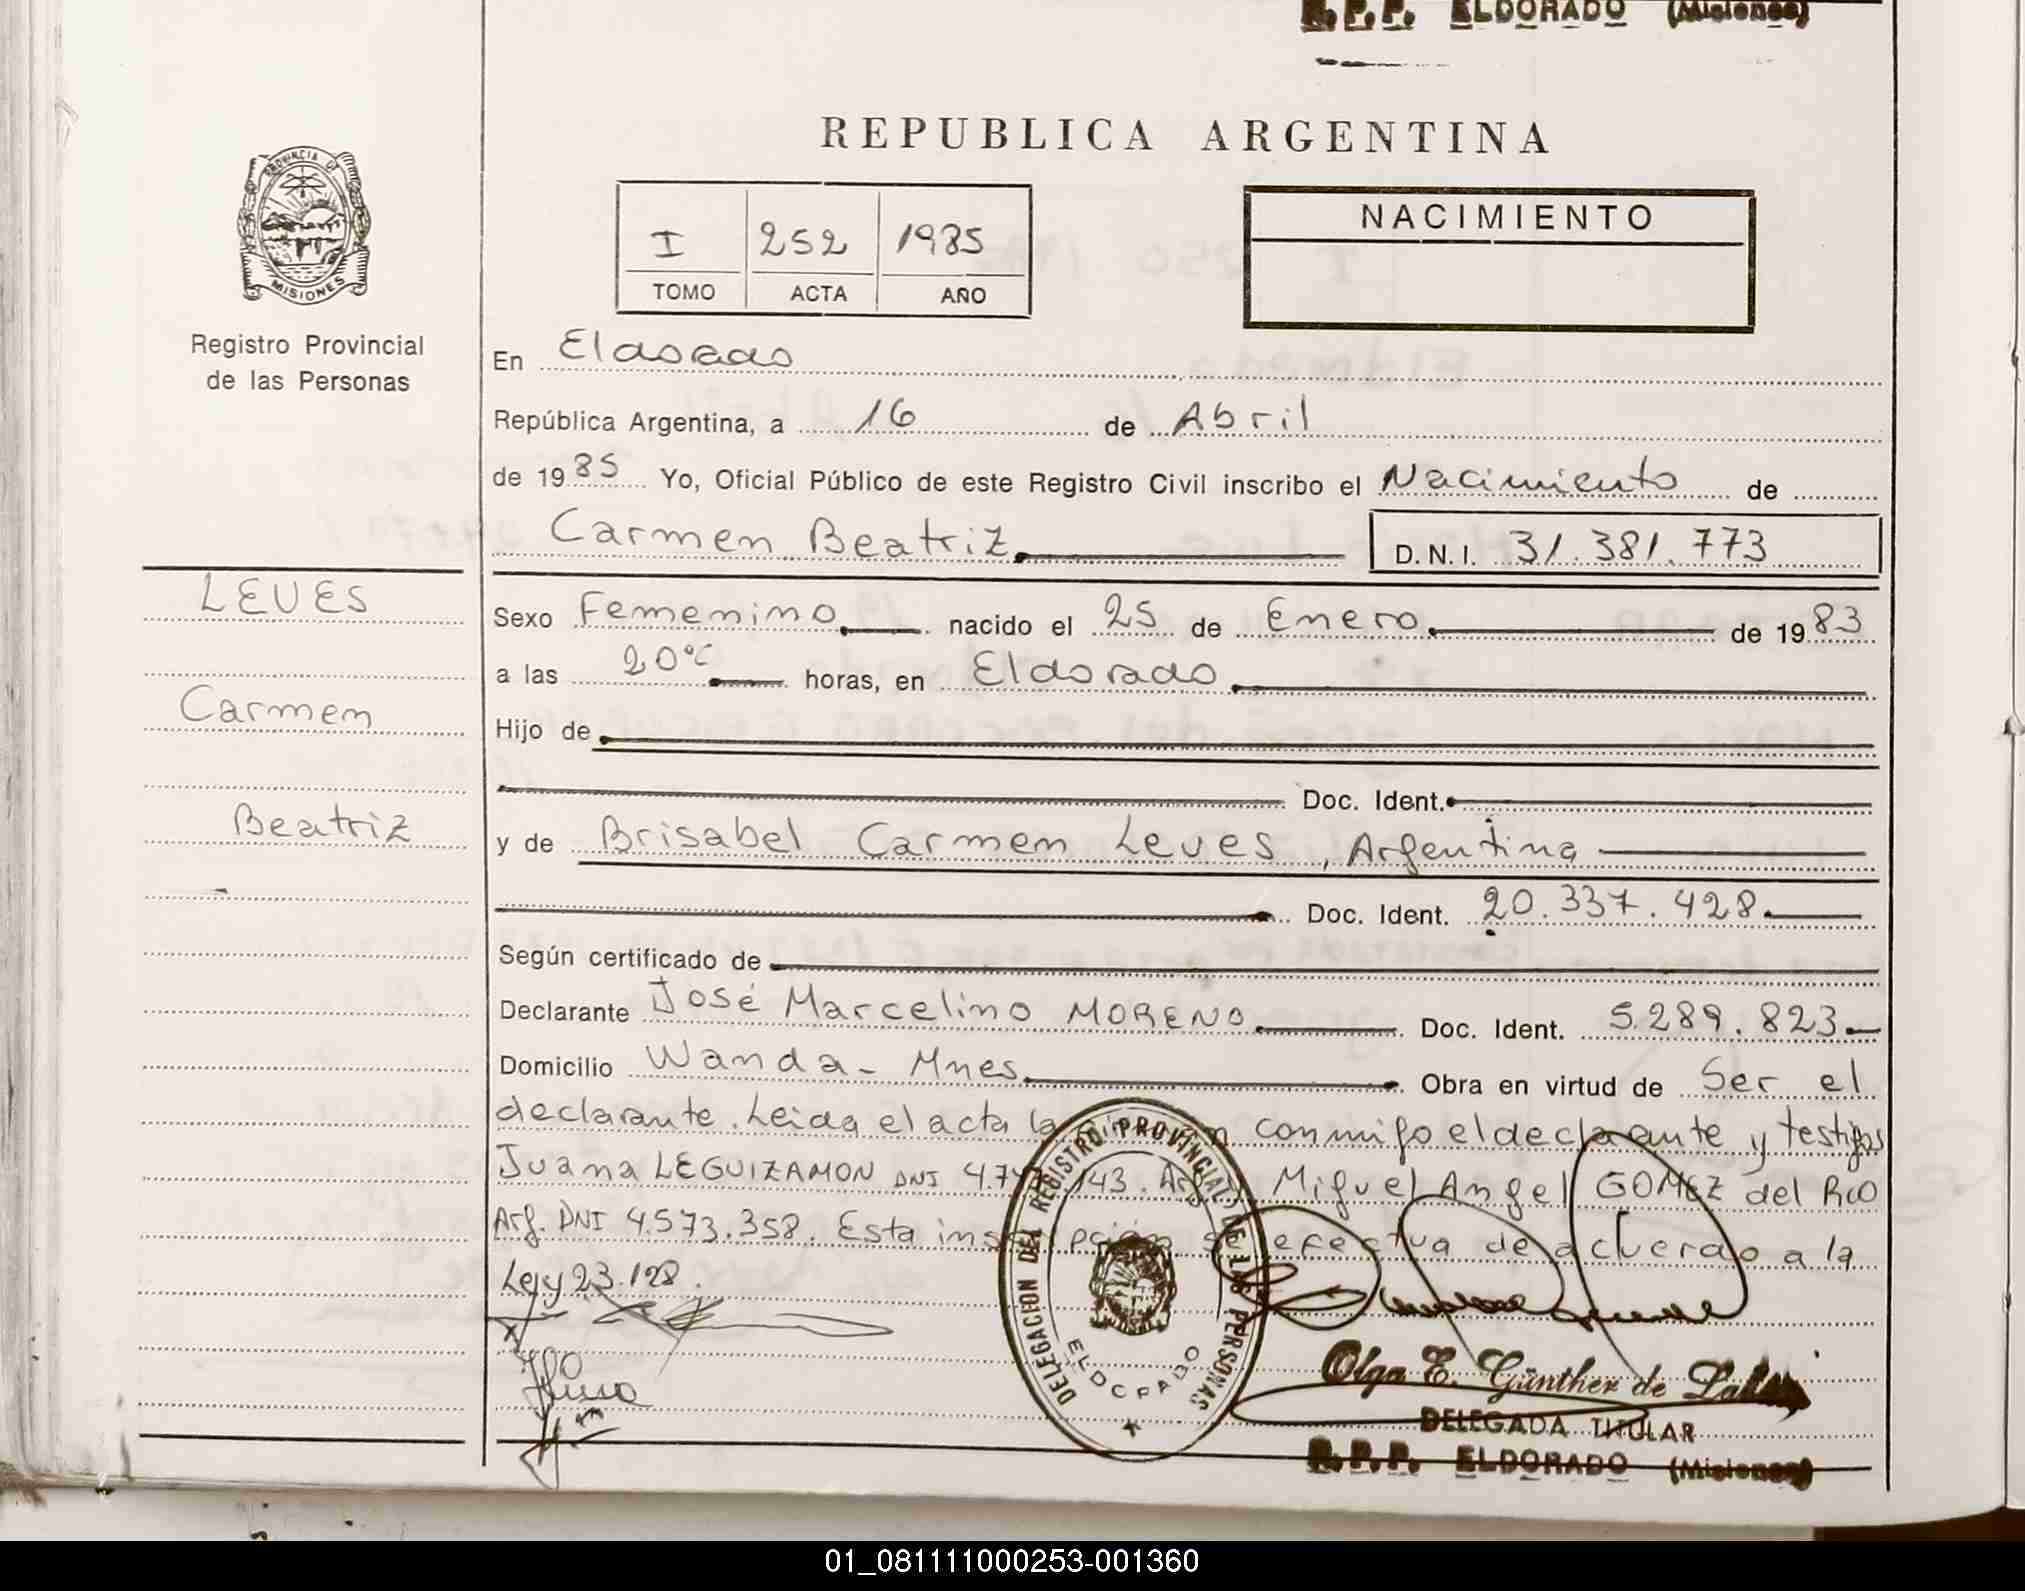 R.P.P. ELDORADO (Misiones)
REPUBLICA ARGENTINA
PROVINCIA DE
MISIONES
Registro Provincial
de las Personas
I 252 1985
TOMO ACTA AÑO
NACIMIENTO
En Eldorado
República Argentina, a 16 de Abril
de 1985 Yo, Oficial Público de este Registro Civil inscribo el Nacimiento de
Carmen Beatriz D.N.I. 31.381.773
LEVES
Carmen
Beatriz
Sexo Femenino nacido el 25 de Enero de 1983
a las 20 horas, en Eldorado
Hijo de
Doc. Ident.
y de Brisabel Carmen Leves, Argentina
Doc. Ident. 20.337.428
Según certificado de
Declarante José Marcelino MORENO Doc. Ident. 5.289.823
Domicilio Wanda - Mnes Obra en virtud de Ser el
declarante. Leida el acta la conmigo el declarante y testigos
Juana LEGUIZAMON DNI Miguel Angel GOMEZ del RCO
Arg. DNI 4.573.358. Esta inscripción se efectua de acuerdo a la
Ley 23.128.
DELEGACION DEL REGISTRO PROVINCIAL DE LAS PERSONAS
ELDORADO
Olga E. Günther de
DELEGADA TITULAR
R.P.P. ELDORADO (Misiones)
01_081111000253-001360